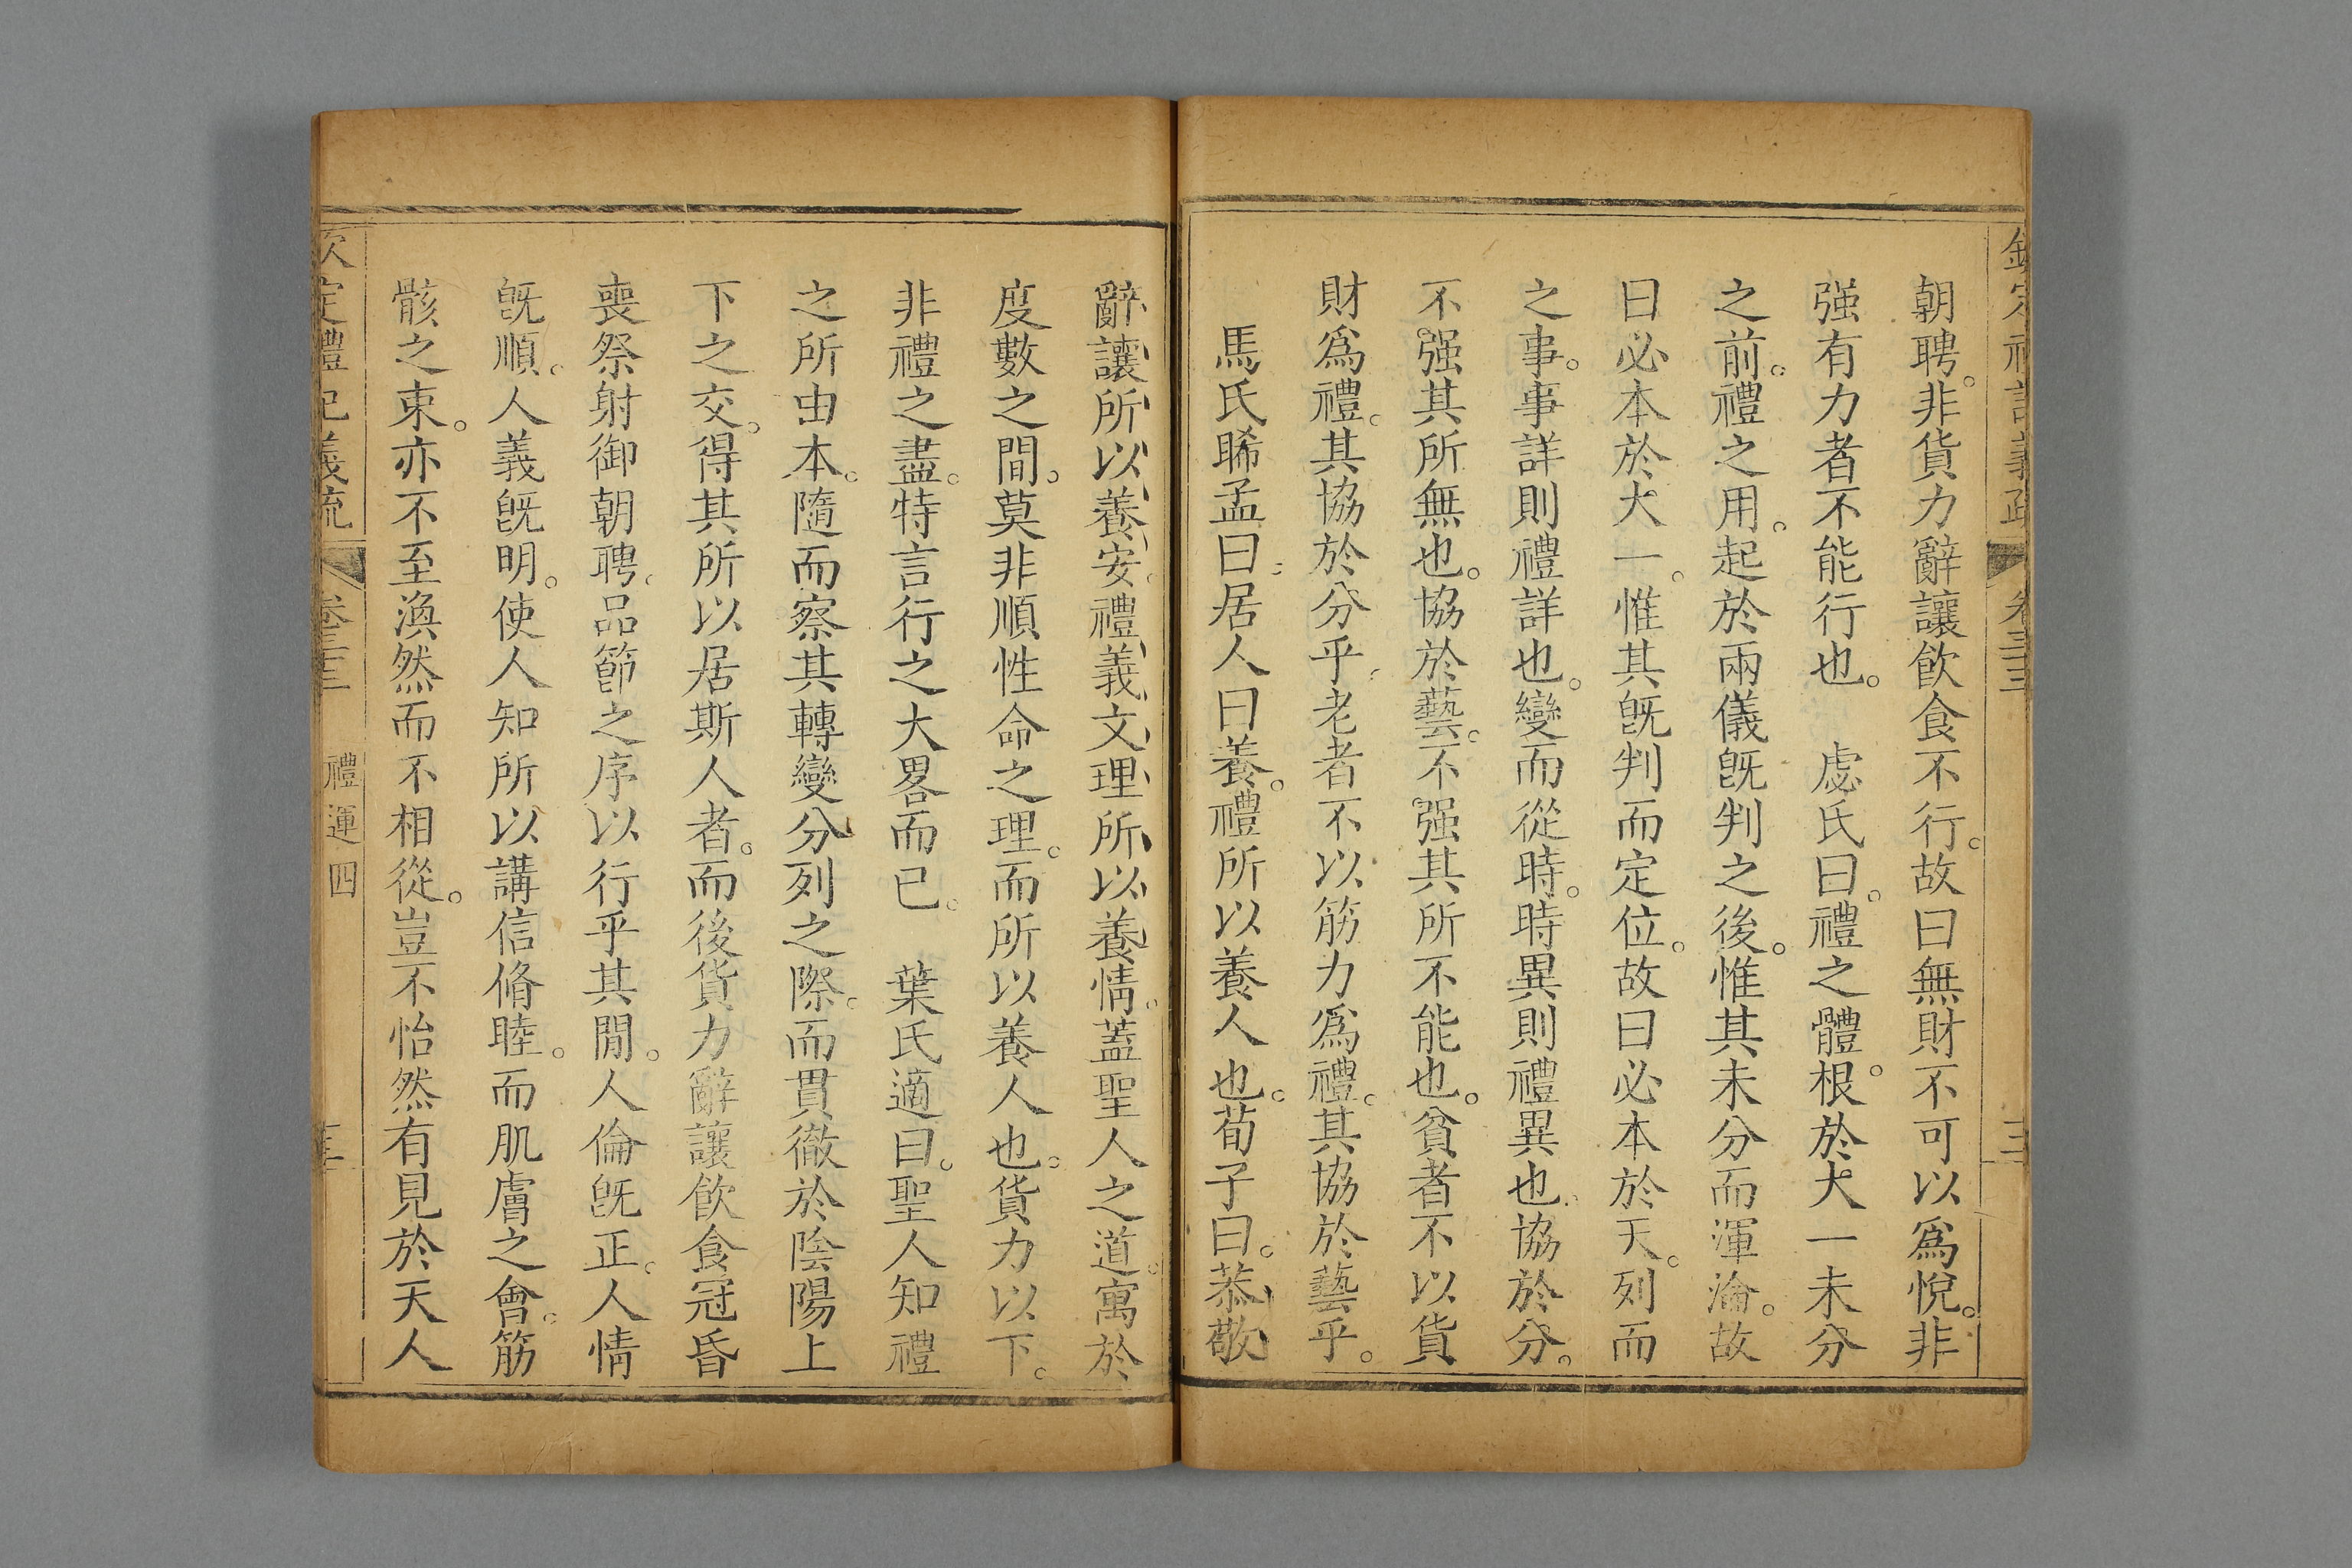 朝聘。非貨力辭讓飲食不行。故曰無財不可以爲悅。非
强有力者不能行也。　慮氏曰。禮之體。根於大一未分
之前。禮之用。起於兩儀旣判之後。惟其未分而渾淪。故
曰必本於大一。惟其旣判而定位。故曰必本於天。列而
之事。事詳則禮詳也。變而從時。時異則禮異也。協於分。
不强其所無也。協於藝。不强其所不能也。貧者不以貨
財爲禮。其協於分乎。老者不以筋力爲禮。其協於藝乎。
馬氏睎孟曰。居人曰養。禮所以養人也。荀子曰。恭敬
辭讓所以養安。禮義文理所以養情。蓋聖人之道。寓於
度數之間。莫非順性命之理。而所以養人也。貨力以下。
非禮之盡。特言行之大畧而已。　葉氏適曰。聖人知禮
之所由本。隨而察其轉變分列之際。而貫徹於陰陽上
下之交。得其所以居斯人者。而後貨力辭讓飲食冠昏
喪祭射御朝聘。品節之序以行乎其閒。人倫旣正。人情
旣順。人義旣明。使人知所以講信脩睦。而肌膚之會。筋
骸之束。亦不至渙然而不相從。豈不怡然有見於天人
欽定禮記義疏
卷三三
禮運四